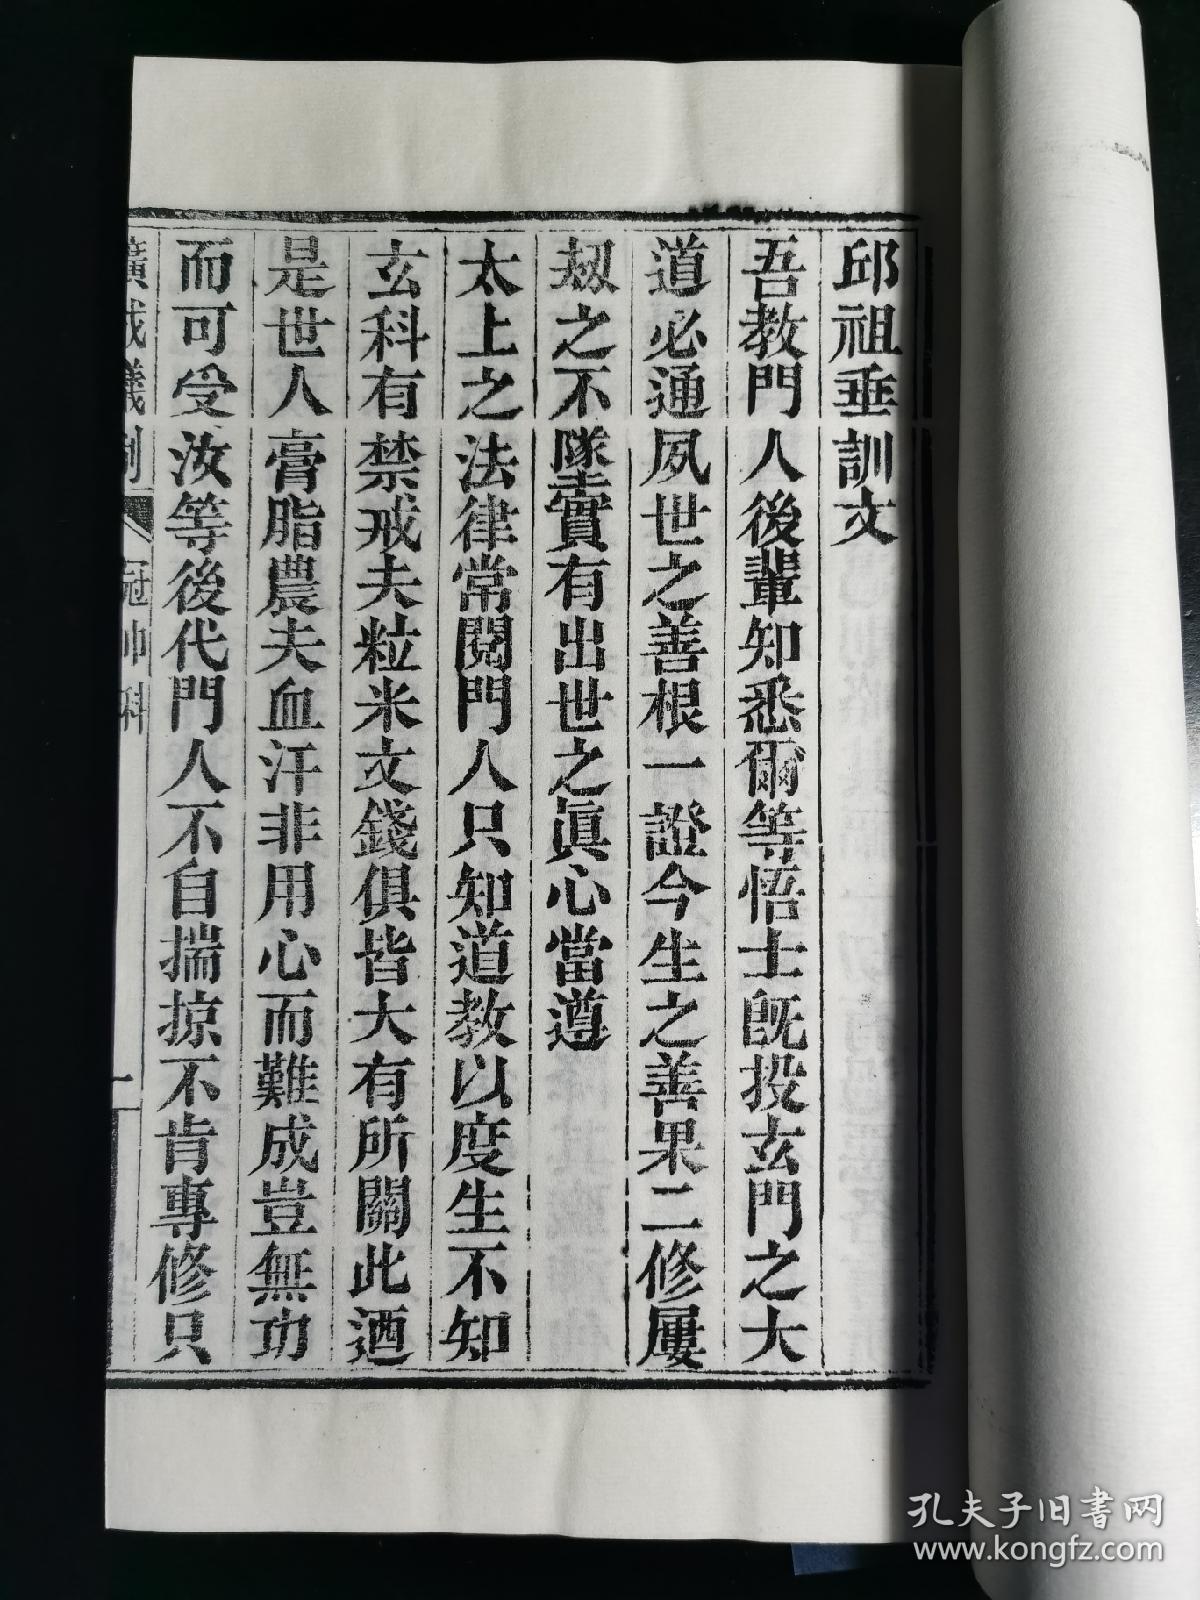 邱祖垂訓文
吾教門人後輩知悉爾等悟士既投玄門之大
道必通夙世之善根一證今生之善果二修屢
刼之不墜實有出世之眞心當遵
太上之法律常閱門人只知道教以度生不知
玄科有禁戒夫粒米文錢俱皆大有所關此迺
是世人膏脂農夫血汗非用心而難成豈無功
而可受汝等後代門人不自揣掠不肯專修只
廣成儀制 冠帥科 一
孔夫子旧书网
www.kongfz.com